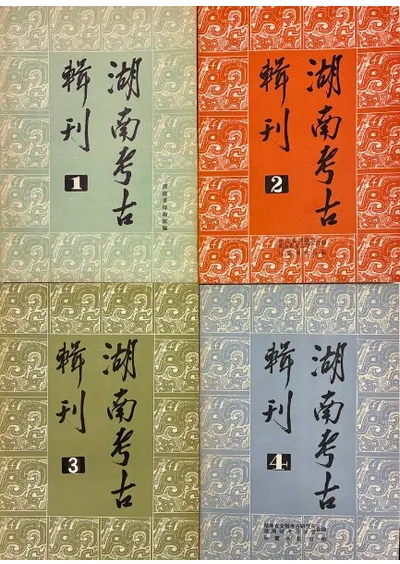 湖南考古
輯刊
1
湖南省博物館編
湖南考古
輯刊
2
湖南考古
輯刊
3
湖南考古
輯刊
4